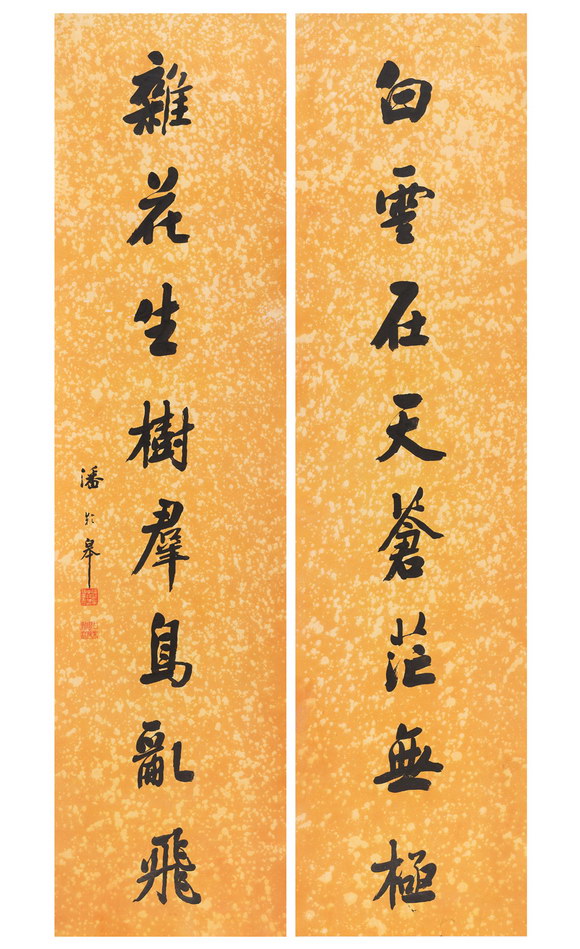 白雲在天蒼茫無極
雜花生樹群鳥亂飛
潘龄皋